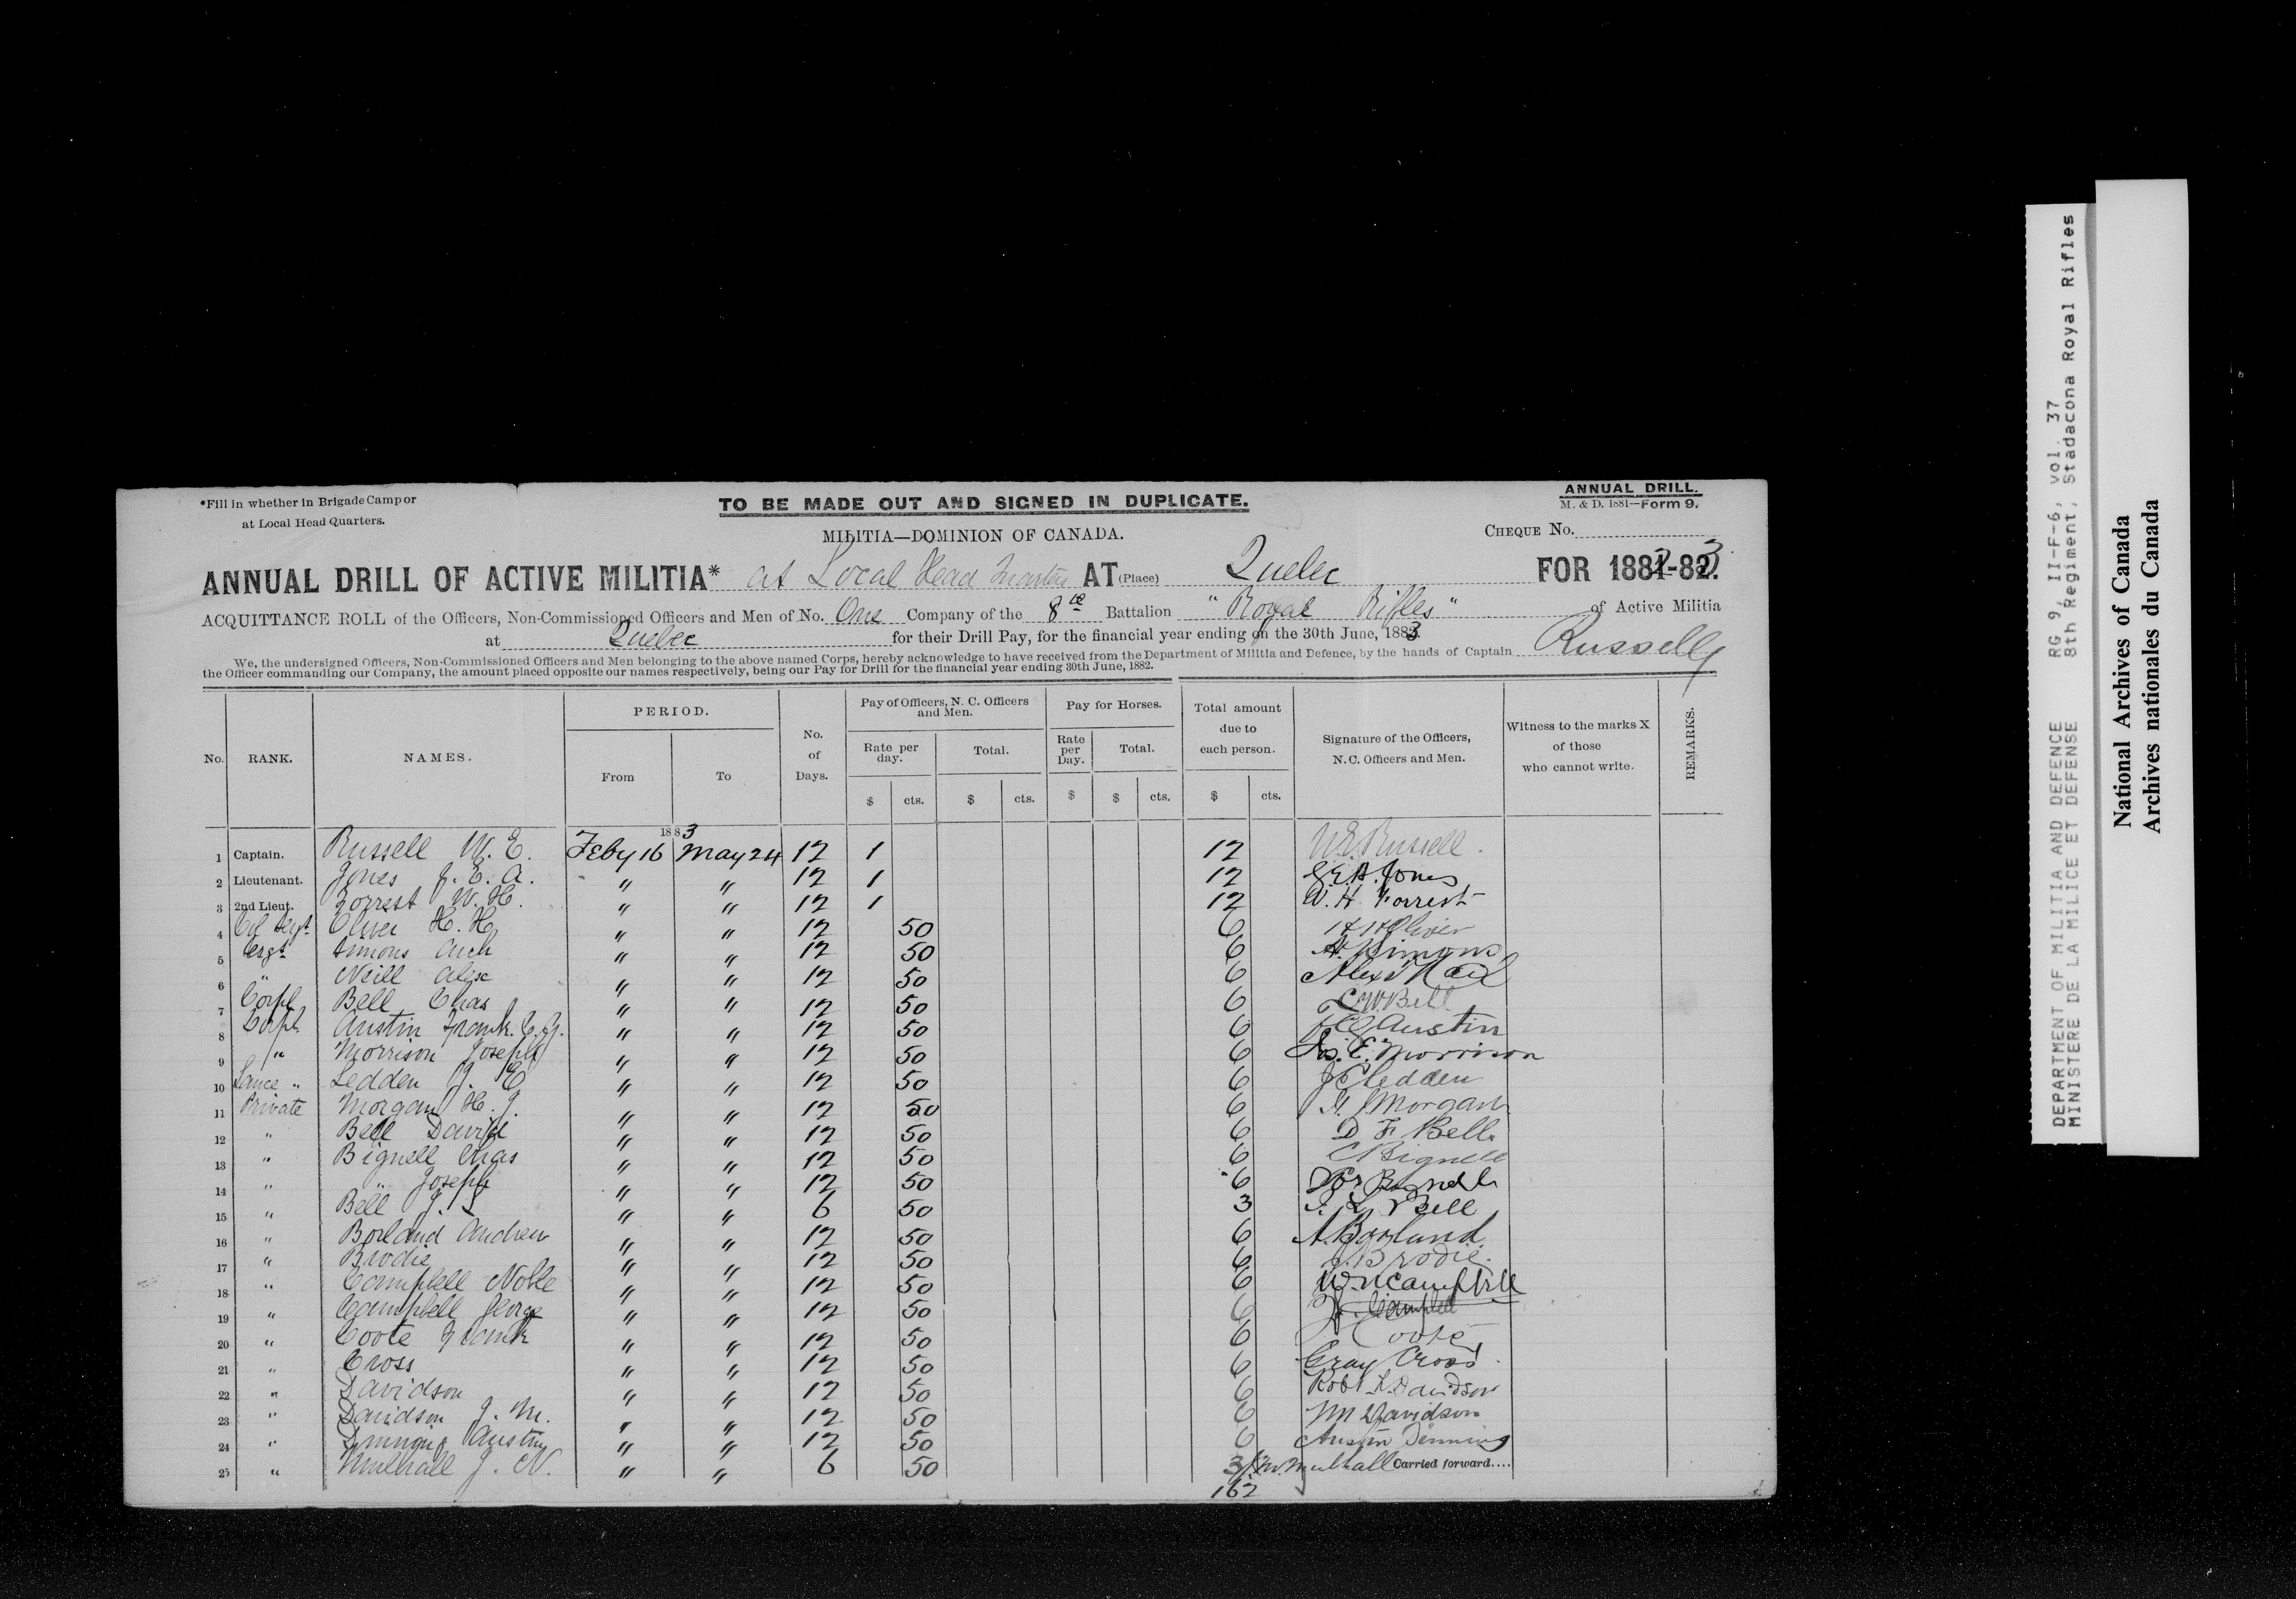 *Fill in whether in Brigade Camp or
at Local Head Quarters.
TO BE MADE OUT AND SIGNED IN DUPLICATE.
ANNUAL DRILL.
M. & D. 1881—Form 9.
MILITIA—DOMINION OF CANADA.
CHEQUE No.
ANNUAL DRILL OF ACTIVE MILITIA* at Local Head Quarters AT (Place) Quebec FOR 1882-83.
ACQUITTANCE ROLL of the Officers, Non-Commissioned Officers and Men of No. One Company of the 8th Battalion "Royal Rifles" of Active Militia
at Quebec for their Drill Pay, for the financial year ending on the 30th June, 1883.
We, the undersigned Officers, Non-Commissioned Officers and Men belonging to the above named Corps, hereby acknowledge to have received from the Department of Militia and Defence, by the hands of Captain Russell
the Officer commanding our Company, the amount placed opposite our names respectively, being our Pay for Drill for the financial year ending 30th June, 1882.
No. RANK. NAMES. PERIOD. From To No. of Days. Pay of Officers, N. C. Officers and Men. Rate per day. $ cts. Total. $ cts. Pay for Horses. Rate per Day. $ Total. $ cts. Total amount due to each person. $ cts. Signature of the Officers, N.C. Officers and Men. Witness to the marks X of those who cannot write. REMARKS.
1883
1 Captain. Russell W. E. Feby 16 May 24 12 1 12 W.E. Russell.
2 Lieutenant. Jones G. E. A. " " 12 1 12 G.E.A. Jones
3 2nd Lieut. Forrest W. H. " " 12 1 12 W. H. Forrest
4 Col Sergt Oliver H. H. " " 12 50 6 H H Oliver
5 Sergt Simons Arch " " 12 50 6 A. Simons
6 " Neill Alex " " 12 50 6 Alex Neil
7 Corpl Bell Chas " " 12 50 6 C W Bell
8 Corpl. Austin Frank. C. G. " " 12 50 6 Austin
9 " Morrison Joseph " " 12 50 6 Jos. E. Morrison
10 Lance " Ledden J. C " " 12 50 6 J C Ledden
11 Private Morgan H. J. " " 12 50 6 H. J Morgan
12 " Bell David " " 12 50 6 D F Bell
13 " Bignell Chas " " 12 50 6 C Bignell
14 " " Joseph " " 12 50 6 Jos Bignell
15 " Bell J. L " " 6 50 3 J. L Bell
16 " Borland Andrew " " 12 50 6 A. Borland.
17 " Brodie " " 12 50 6 J. Brodie.
18 " Campbell Noble " " 12 50 6 W. N Campbell
19 " Campbell George " " 12 50 6 G. Campbell
20 " Coote Frank " " 12 50 6 F Coote
21 " Cross " " 12 50 6 Gray Cross.
22 " Davidson " " 12 50 6 Robt L. Davidson
23 " Davidson J. M. " " 12 50 6 Davidson
24 " Dinning Austin " " 12 50 6 Austin Dinning
25 " Mulhall J. N. " " 6 50 3 J. N. Mulhall Carried forward....
162
DEPARTMENT OF MILITIA AND DEFENCE RG 9, II-F-6, vol. 37
MINISTERE DE LA MILICE ET DEFENSE 8th Regiment, Stadacona Royal Rifles
National Archives of Canada
Archives nationales du Canada